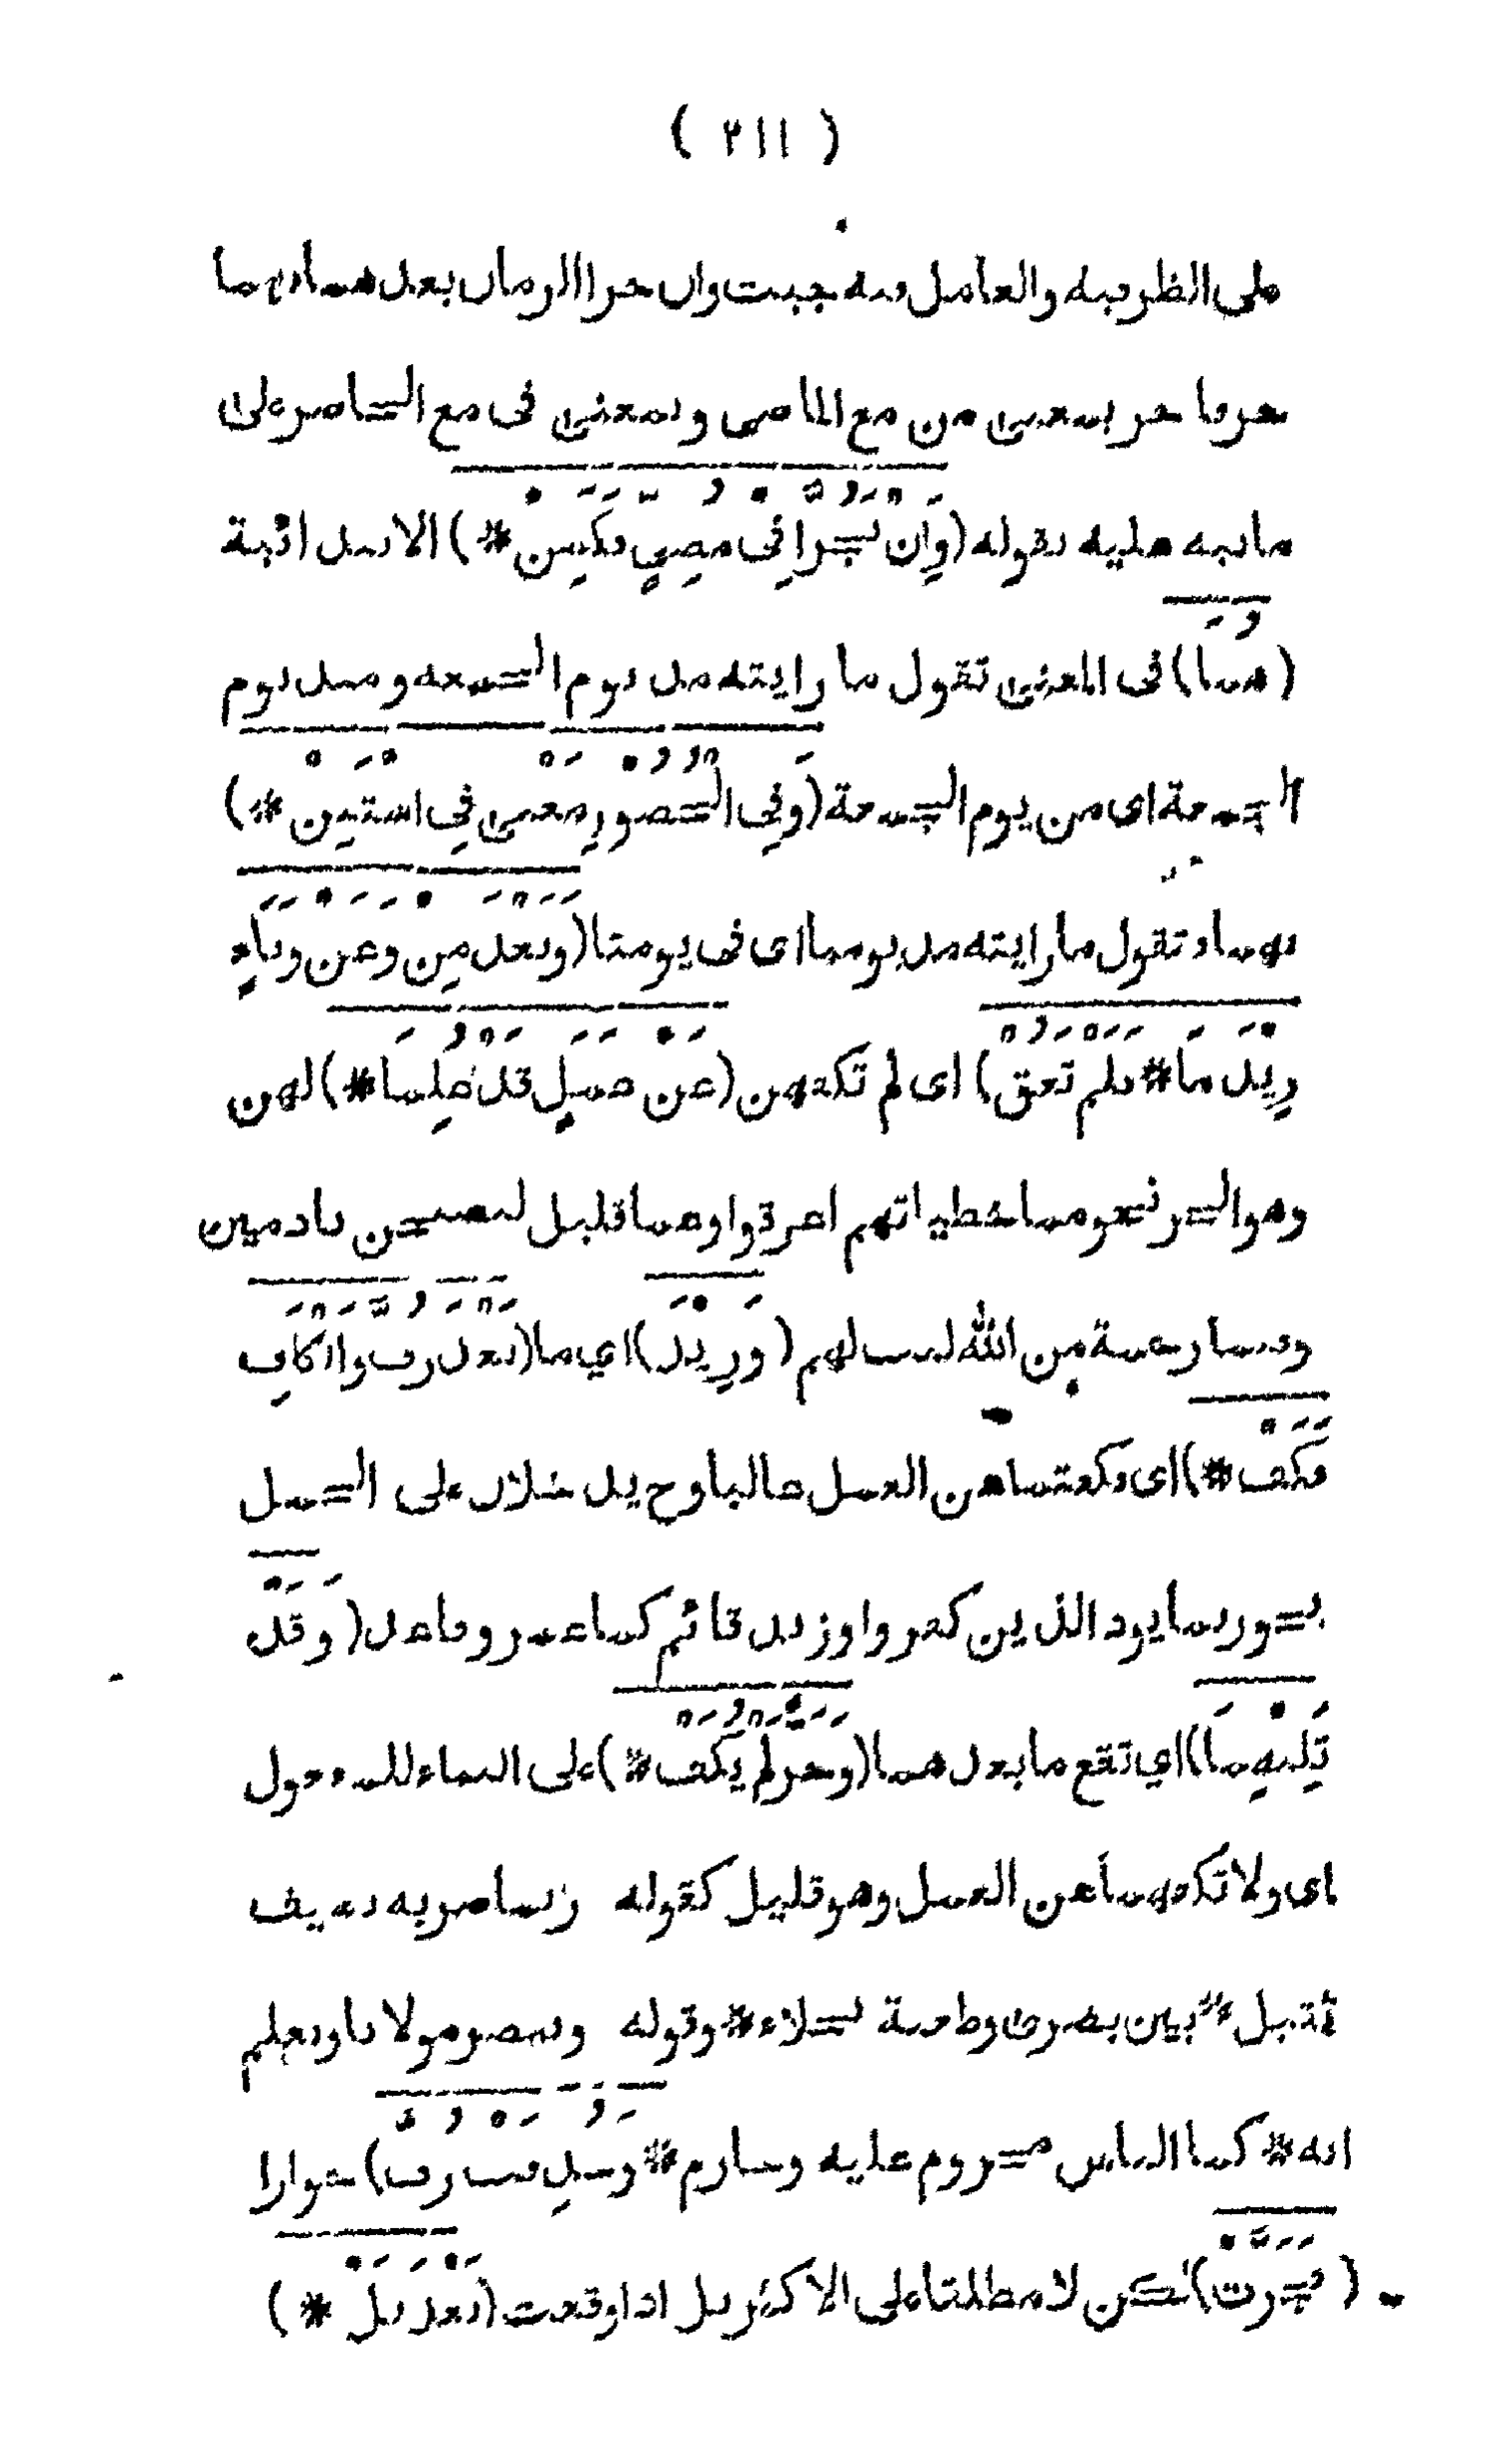 ( ٢١١ )
على الظرفية والعامل فيه جيت وان جرا الزمان بعدهما فهما
حرفا جر بمعنى من مع الماضى وبمعنى فى مع الحاضر على
ما نبه عليه بقوله (وَاِنْ يَجُرَّا فِى مُضِيٍّ فَكَمِنْ #) الابتدائية
(هُمَا) فى المعنى تقول ما رايته مذ يوم الجمعة ومنذ يوم
الجمعة اى من يوم الجمعة (وَفِى الْحُضُورِ مَعْنَى فِى اسْتَبِنْ #)
بهما و تقول ما رايته مذ يومنا اى فى يومنا (وَبَعْدَ مِنْ وَعَنْ وَبَاءٍ
زِيْدَ مَا # فَلَمْ تَعُقْ) اى لم تكفهن (عَنْ عَمَلٍ قَدْ عُلِمَا #) لهن
وهو الجر نحو مما خطياتهم اغرقوا وعما قليل ليصبحن نادمين
وفبما رحمة من الله لنت لهم (وَزِيْدَ) اي ما (بَعْدَ رُبَّ وَالْكَافِ
فَكَفْ #) اى فكفتهما عن العمل غالبا وح يدخلان على الجمل
نحو ربما يود الذين كفروا وزيد قائم كما عمرو قاعد (وَقَدْ
تَلِيْهِمَا) اي تقع ما بعدهما (وَجَرٌّ لَمْ يُكَفْ #) على البناء للمفعول
اى ولا تكفهما عن العمل وهو قليل كقوله ربما ضربه بسيف
صقيل # بين بصرى وطعنة نجلاء # وقوله وننصر مولانا ونعلم
انه # كما الناس مجروم عليه وجارم # وَحُذِفَتْ رُبَّ) جوازا
(فَجَرَّتْ) لكن لا مطلقا على الاكثر بل اذا وقعت (بَعْدَ بَلْ #)